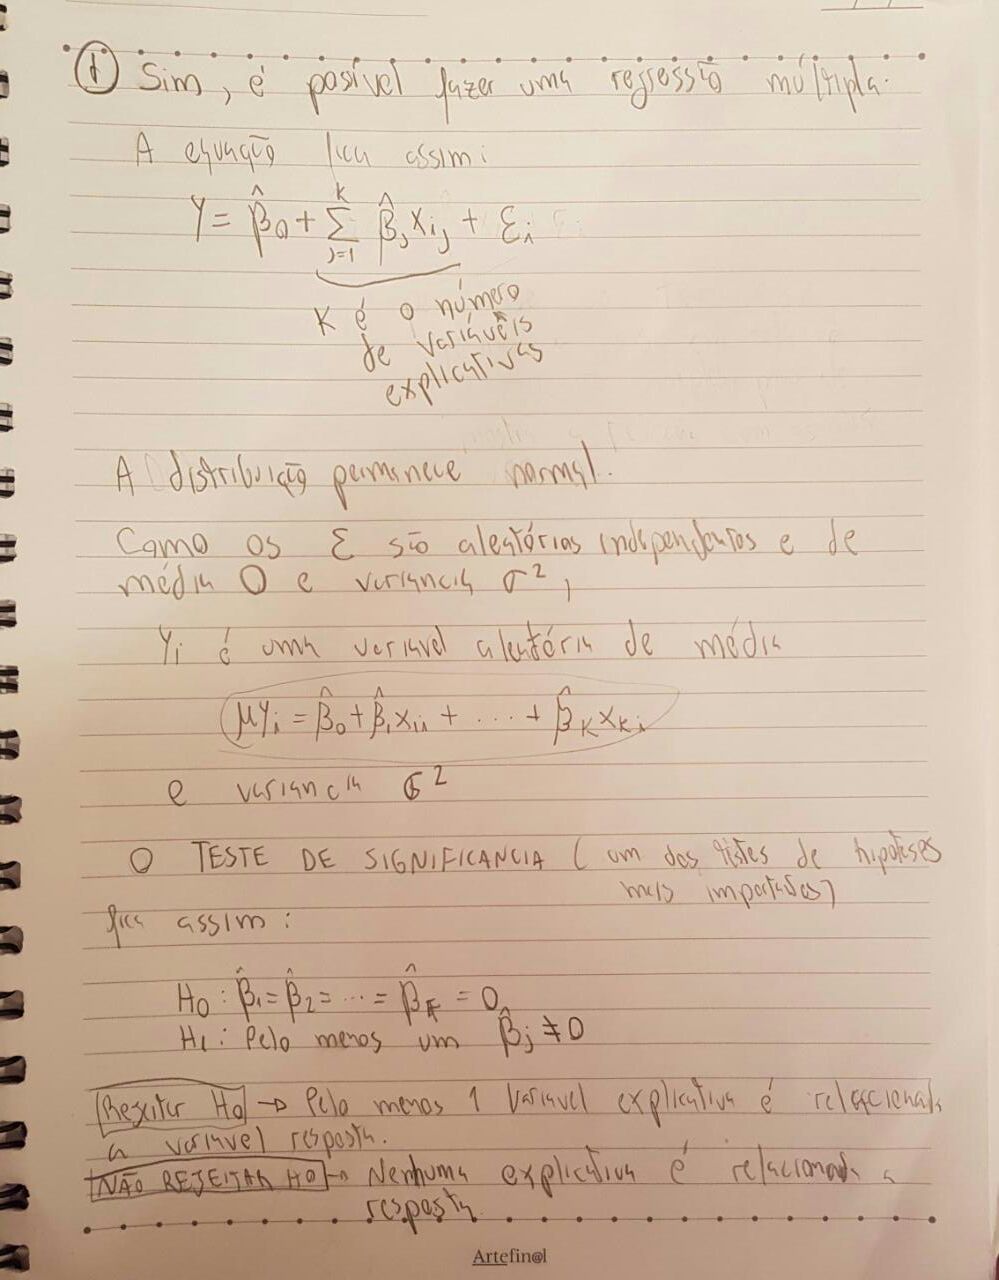 f) Sim, é posível fazer uma regressão múltipla.
A equação fica assim:
Y = β̂0 + Σ β̂j xij + εi
k
j=1
K é o número
de variáveis
explicativas
A distribuição permanece normal.
Como os ε são aleatórios independentes e de
média 0 e variancia σ²,
Yi é uma variavel aleatória de média
μYi = β̂0 + β̂1 x1i + ... + β̂K xKi
e variancia σ²
O TESTE DE SIGNIFICANCIA (um dos testes de hipoteses
mais importantes)
fica assim:
H0 : β̂1 = β̂2 = ... = β̂K = 0
H1 : Pelo menos um β̂j ≠ 0
Rejeitar H0 → Pelo menos 1 Variavel explicativa é relacionada
a variavel resposta.
NÃO REJEITAR H0 → Nenhuma explicativa é relacionada a
resposta.
Artefin@l